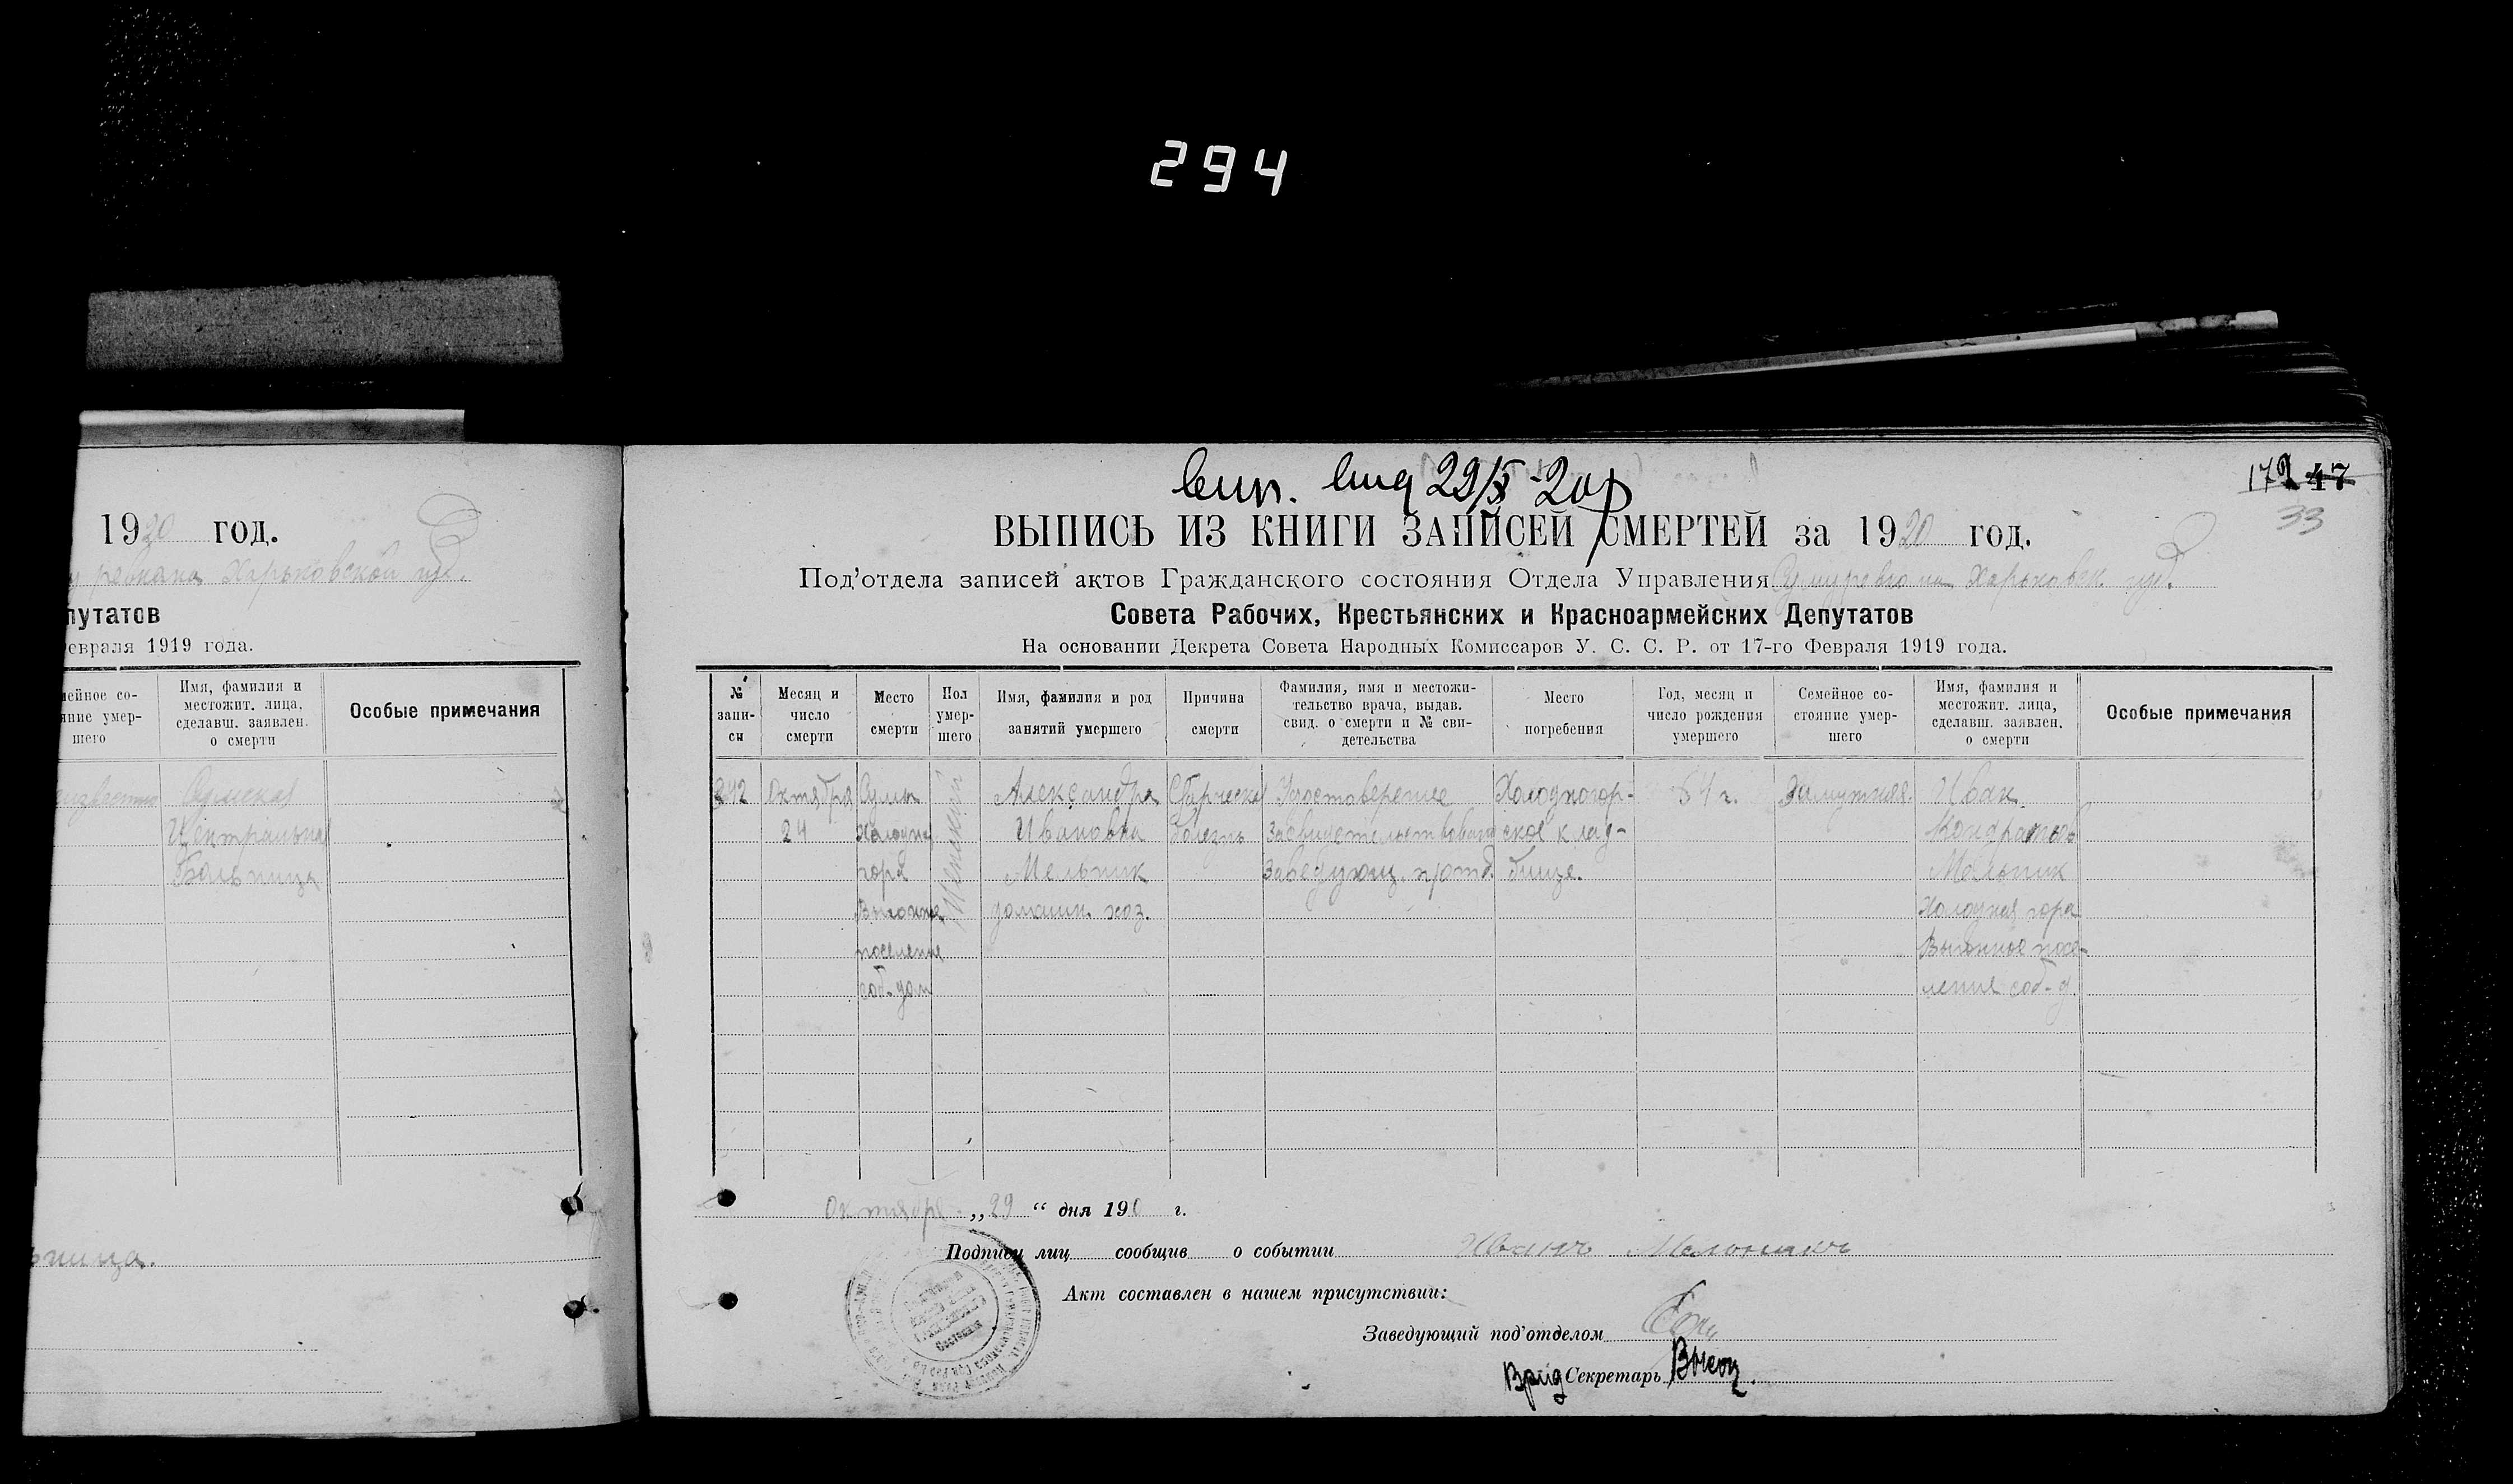 294
1920 год.
ревкома Харьковской губ.
путатов
евраля 1919 года.
мейное со-
яние умер-
шего
Имя, фамилия и
местожит. лица,
сделавш. заявлен.
о смерти
Особые примечания
Сумская
Центральная
Больница
ьница.
29/X-20
172 47
33
ВЫПИСЬ ИЗ КНИГИ ЗАПИСЕЙ СМЕРТЕЙ за 1920 год.
Под'отдела записей актов Гражданского состояния Отдела Управления Сумуревкома Харьковск. губ.
Совета Рабочих, Крестьянских и Красноармейских Депутатов
На основании Декрета Совета Народных Комиссаров У. С. С. Р. от 17-го Февраля 1919 года.
№
запи-
си
Месяц и
число
смерти
Место
смерти
Пол
умер-
шего
Имя, фамилия и род
занятий умершего
Причина
смерти
Фамилия, имя и местожи-
тельство врача, выдав.
свид. о смерти и № сви-
детельства
Место
погребения
Год, месяц и
число рождения
умершего
Семейное со-
стояние умер-
шего
Имя, фамилия и
местожит. лица,
сделавш. заявлен.
о смерти
Особые примечания
Октября
24
Сумы
Холодная
гора
поселение
соб. дом
Женский
Александра
Ивановна
Мельник
домашн. хоз.
Старческа
болезнь
Заведующ. п/отд.
Холодногор-
ское клад-
бище.
Замужняя.
Иван
Кондратов
Мельник
Холодная гора
Выгонное посе-
ление соб-д.
октября „29“ дня 190 г.
Подписи лиц сообщив о событии Иванъ
Акт составлен в нашем присутствии:
Заведующий под'отделом
Врид Секретарь